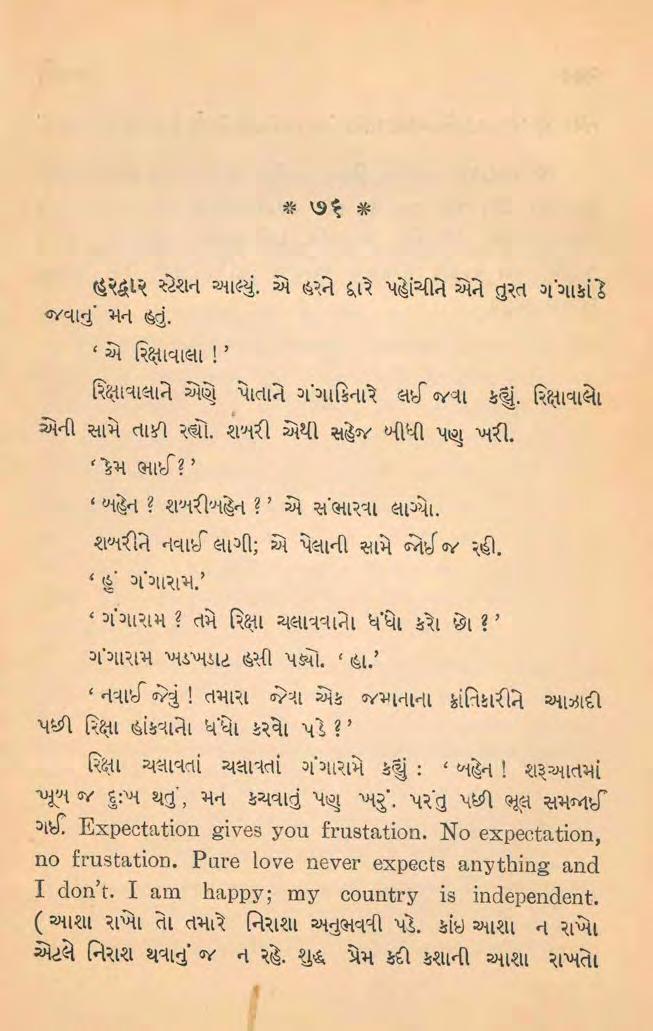 * ૭૬ *
હરદ્વાર સ્ટેશન આવ્યું. એ હરને દ્વારે પહોંચીને એને તુરત ગંગાકાંઠે
જવાનું મન હતું.
‘ એ રિક્ષાવાલા ! ’
રિક્ષાવાલાને એણે પોતાને ગંગાકિનારે લઈ જવા કહ્યું. રિક્ષાવાલો
એની સામે તાકી રહ્યો. શબરી એથી સહેજ બીધી પણ ખરી.
‘ કેમ ભાઈ ? ’
‘ બહેન ? શબરીબહેન ? ’ એ સંભારવા લાગ્યો.
શબરીને નવાઈ લાગી; એ પેલાની સામે જોઈ જ રહી.
‘ હું ગંગારામ.’
‘ ગંગારામ ? તમે રિક્ષા ચલાવવાનો ધંધો કરો છો ? ’
ગંગારામ ખડખડાટ હસી પડ્યો. ‘ હા.’
‘ નવાઈ જેવું ! તમારા જેવા એક જમાનાના ક્રાંતિકારીને આઝાદી
પછી રિક્ષા હાંકવાનો ધંધો કરવો પડે ? ’
રિક્ષા ચલાવતાં ચલાવતાં ગંગારામે કહ્યું : ‘ બહેન ! શરૂઆતમાં
ખૂબ જ દુઃખ થતું, મન કચવાતું પણ ખરું. પરંતુ પછી ભૂલ સમજાઈ
ગઈ. Expectation gives you frustation. No expectation,
no frustation. Pure love never expects anything and
I don’t. I am happy; my country is independent.
( આશા રાખો તો તમારે નિરાશા અનુભવવી પડે. કાંઇ આશા ન રાખો
એટલે નિરાશ થવાનું જ ન રહે. શુદ્ધ પ્રેમ કદી કશાની આશા રાખતો